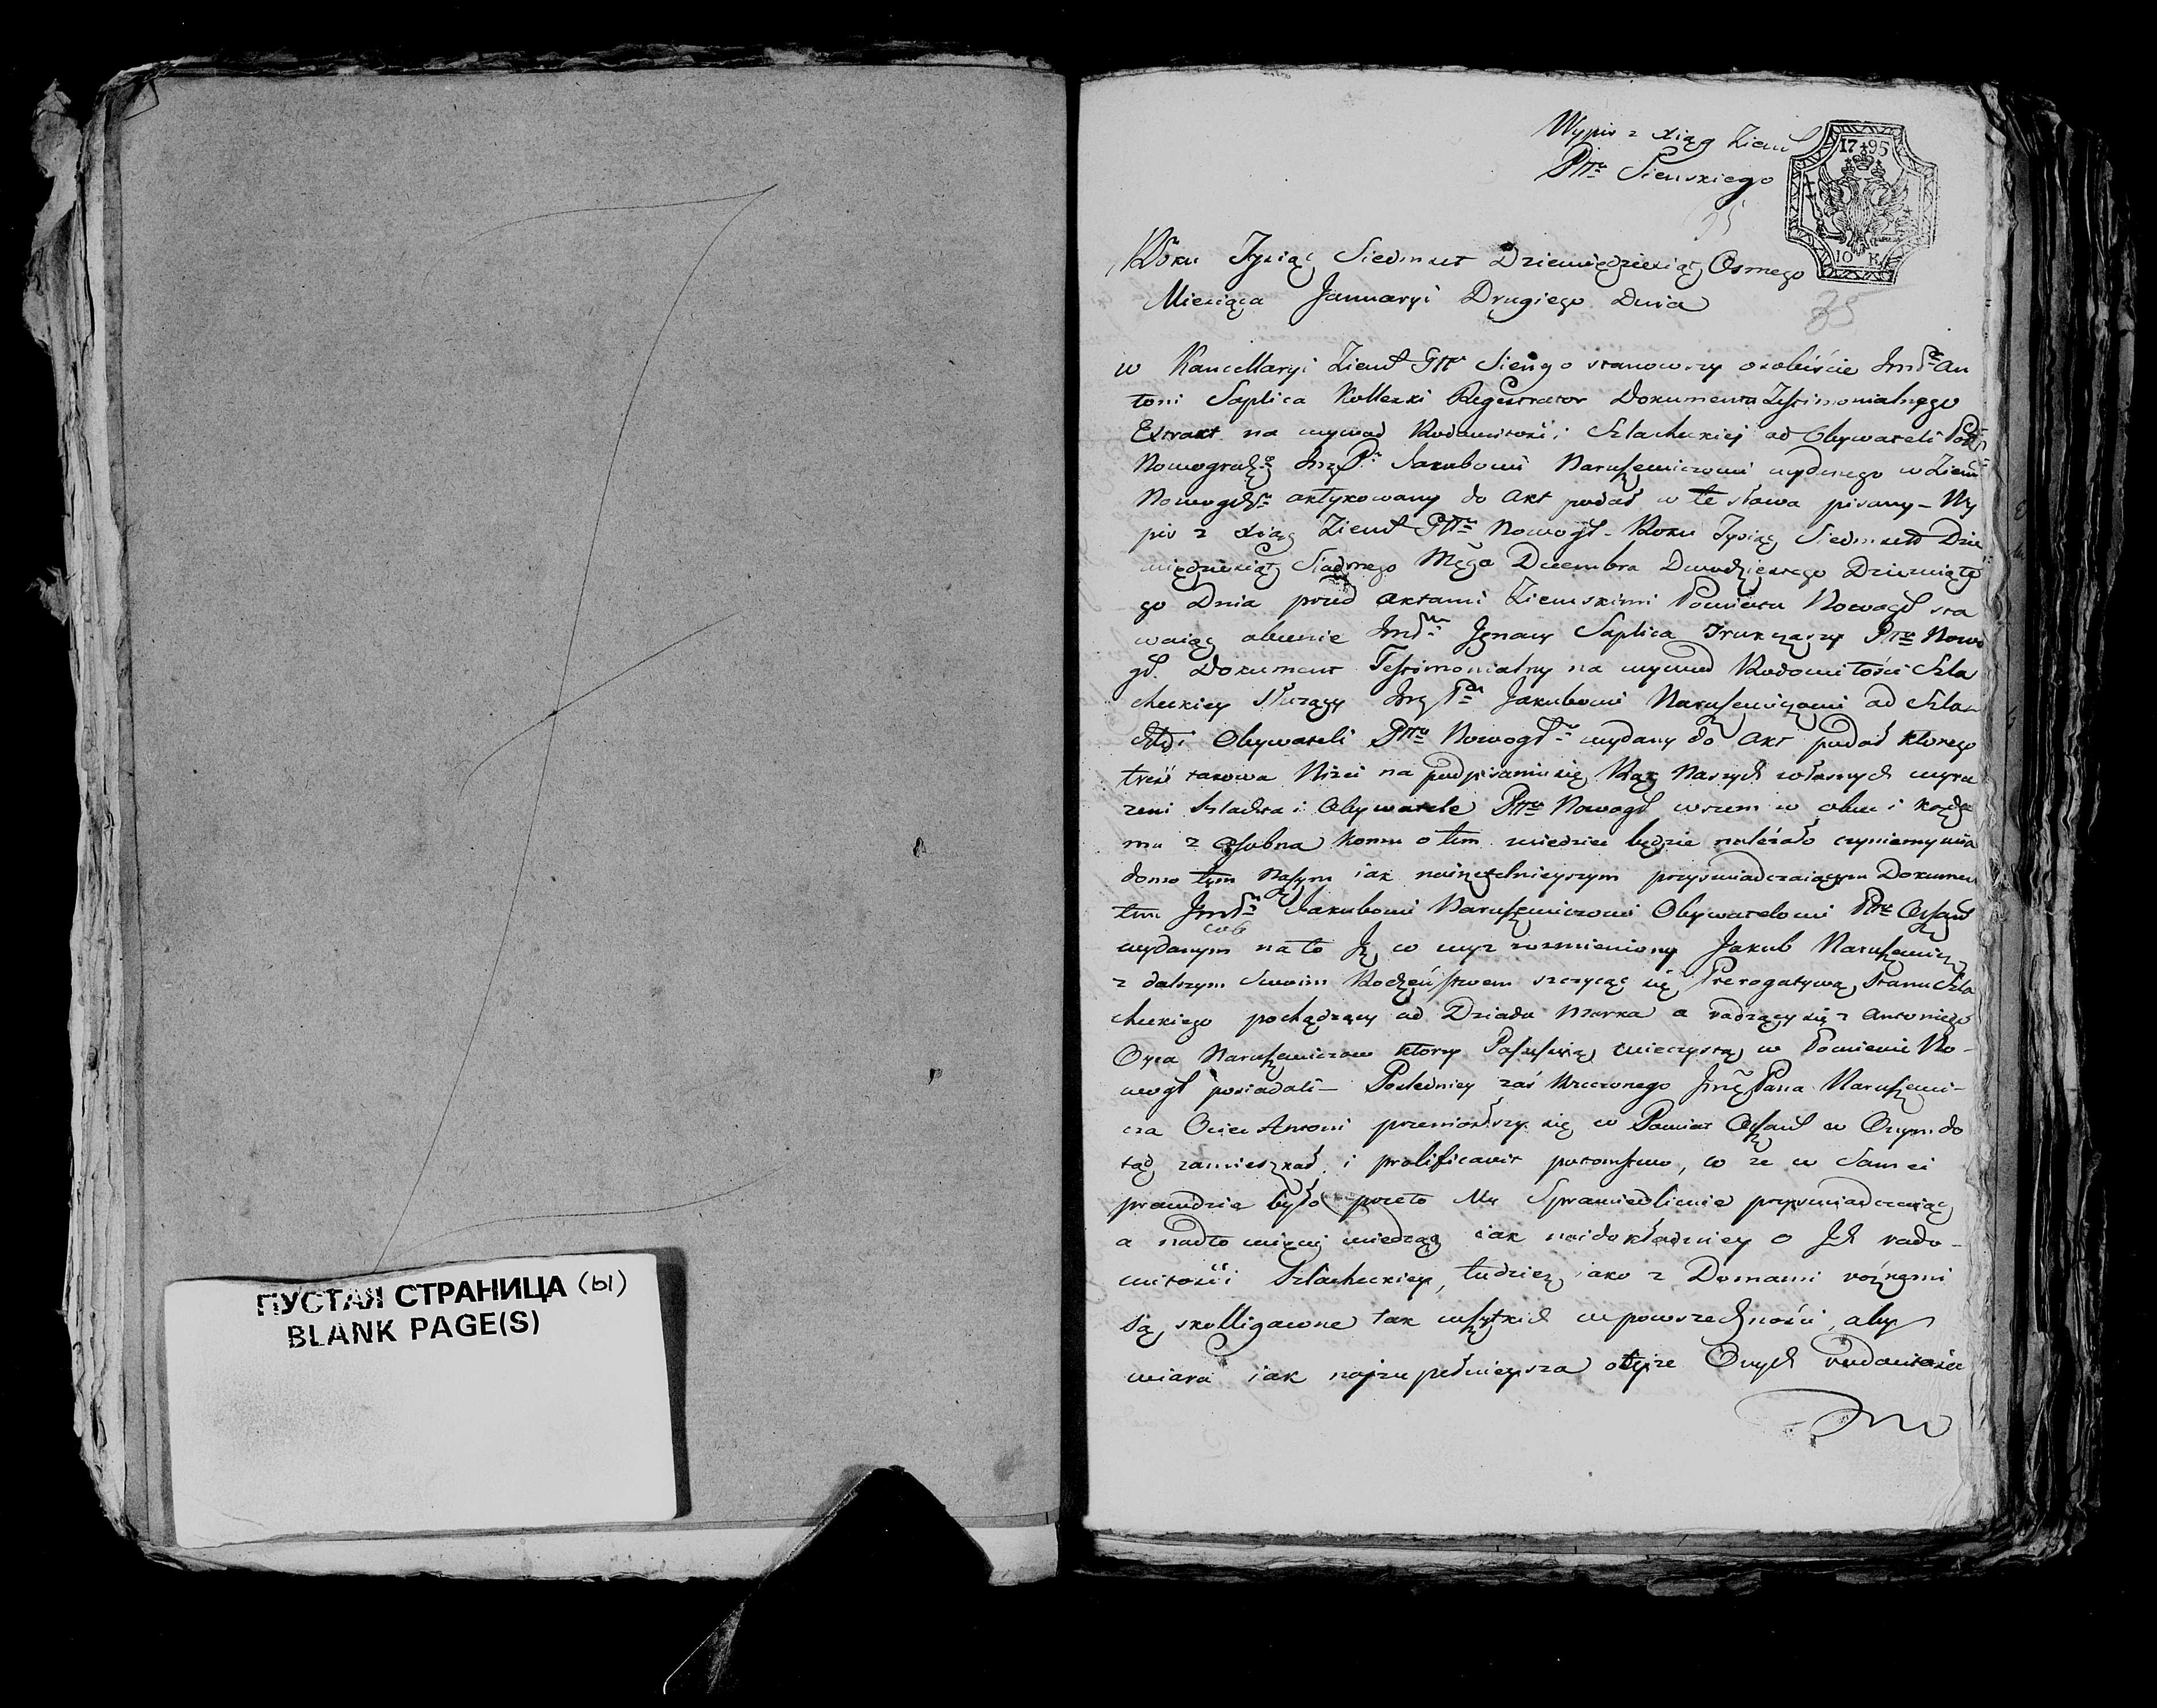 ПУСТАЯ СТРАНИЦА (ы)
BLANK PAGE(S)
Wypis z Xiąg Ziem
Pttu Sienskiego
1795
10 K
35
Roku Tysiąc Siedmset Dziewiędziesiąt Osmego
Miesiąca Januaryi Drugiego Dnia
w Kancellaryi Ziem Pttu Siengo stanowszy osobiście Jmć Pan An
toni Saplica Kolleski Regestrator Dokumentu Testimonialnego
Extrakt na wywod Rodowitości Szlacheckiej od Obywateli Pow
Nowogrodzgo Jmć Pu Jakubowi Naruszewiczowi wydanego w Ziem
Nowogdz aktykowany do akt podał w te słowa pisany - Wy
pis z Xiąg Ziem Pttu Nowogd. Roku Tysiąc Siedmset Dzie
więdziesiąt Siodmego Mca Decembra Dwudziestego Dziewiąte
go Dnia przed aktami Ziemskimi Powiatu Nowogd sta
waiąc obecnie Jmć Ignacy Saplica Pttu Nowo
gd. Dokument Testimonialny na wywod Rodowitości Szla
checkiey służący Jmć Pu Jakubowi Naruszewiczowi od Szla
chty i Obywateli Pttu Nowogd wydany do akt podał ktorego
treść takowa Niżei na podpisaniu się Rąk Naszych własnych wyra
żeni Szlachta i Obywatele Pttu Nowogd wszem w obec i każde
mu z osobna komu o tem wiedzieć będzie należało czyniemy wia
domo tym Naszym iak nairzetelnieyszym przyswiadczaiącym Dokumen
tem Jmć Jakubowi Naruszewiczowi Obywatelowi Pttu Oszm
wydanym na to Iż w wyz rozmieniony Jakub Naruszewicz
z dalszym Swoim Rodzeństwem szczycąc się Prerogatywą Stanu Szla
checkiego pochądzący od Dziada Marka a radzący się z Antoniego
Oyca Naruszewiczow ktorzy Possessią wieczystą w Powiecie No-
wogd posiadali - Posledniey zaś Rzeczonego Jmć Pana Naruszewi-
cza Ociec Antoni przeniosłszy się w Powiat Oszm w Onym do
tąd zamieszkał i prolificavit potomstwo, co że w Samei
prawdzie było przeto My Sprawiedliwie przyswiadczaiąc
a nadto więcej wiedząc iak naidokładniey o Ich rodo-
witości Szlacheckiey, tudziez iako z Domami rożnemi
są skolligacone tak wszytkich w powszechności, aby
wiara iak najzupełnieysza otejże Onych rodowitości